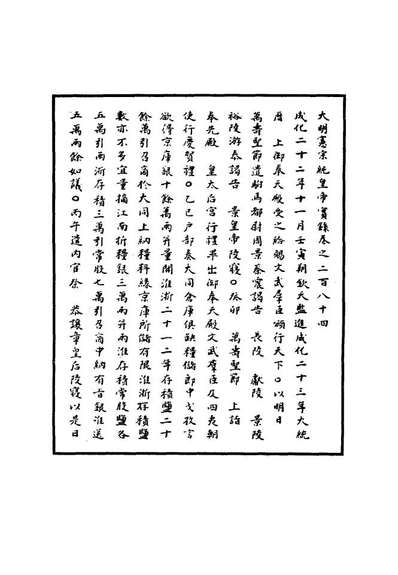 大明憲宗純皇帝實錄卷之二百八十四
成化二十二年十一月壬寅朔欽天監進成化二十三年大統
曆　上御奉天殿受之給賜文武羣臣頒行天下○以明日
萬壽聖節遣駙馬都尉周景蔡震謁告　長陵　獻陵　景陵
裕陵游泰謁告　景皇帝陵寢○癸卯　萬壽聖節　上詣
奉先殿　皇太后宮行禮畢出御奉天殿文武羣臣及四夷朝
使行慶賀禮○乙巳戶部奏大同倉庫俱缺糧儲郎中戈孜言
欲得京庫銀十餘萬兩并量開淮浙二十一二年存積鹽二十
餘萬引召商於大同上納糧料緣京庫所儲有限淮浙存積鹽
數亦不多宜量摘江南折糧銀三萬兩并兩淮存積常股鹽各
五萬引兩浙存積三萬引常股七萬引召商中納有首銀准送
五萬兩餘如議○丙午遣內官祭　恭讓章皇后陵寢以是日